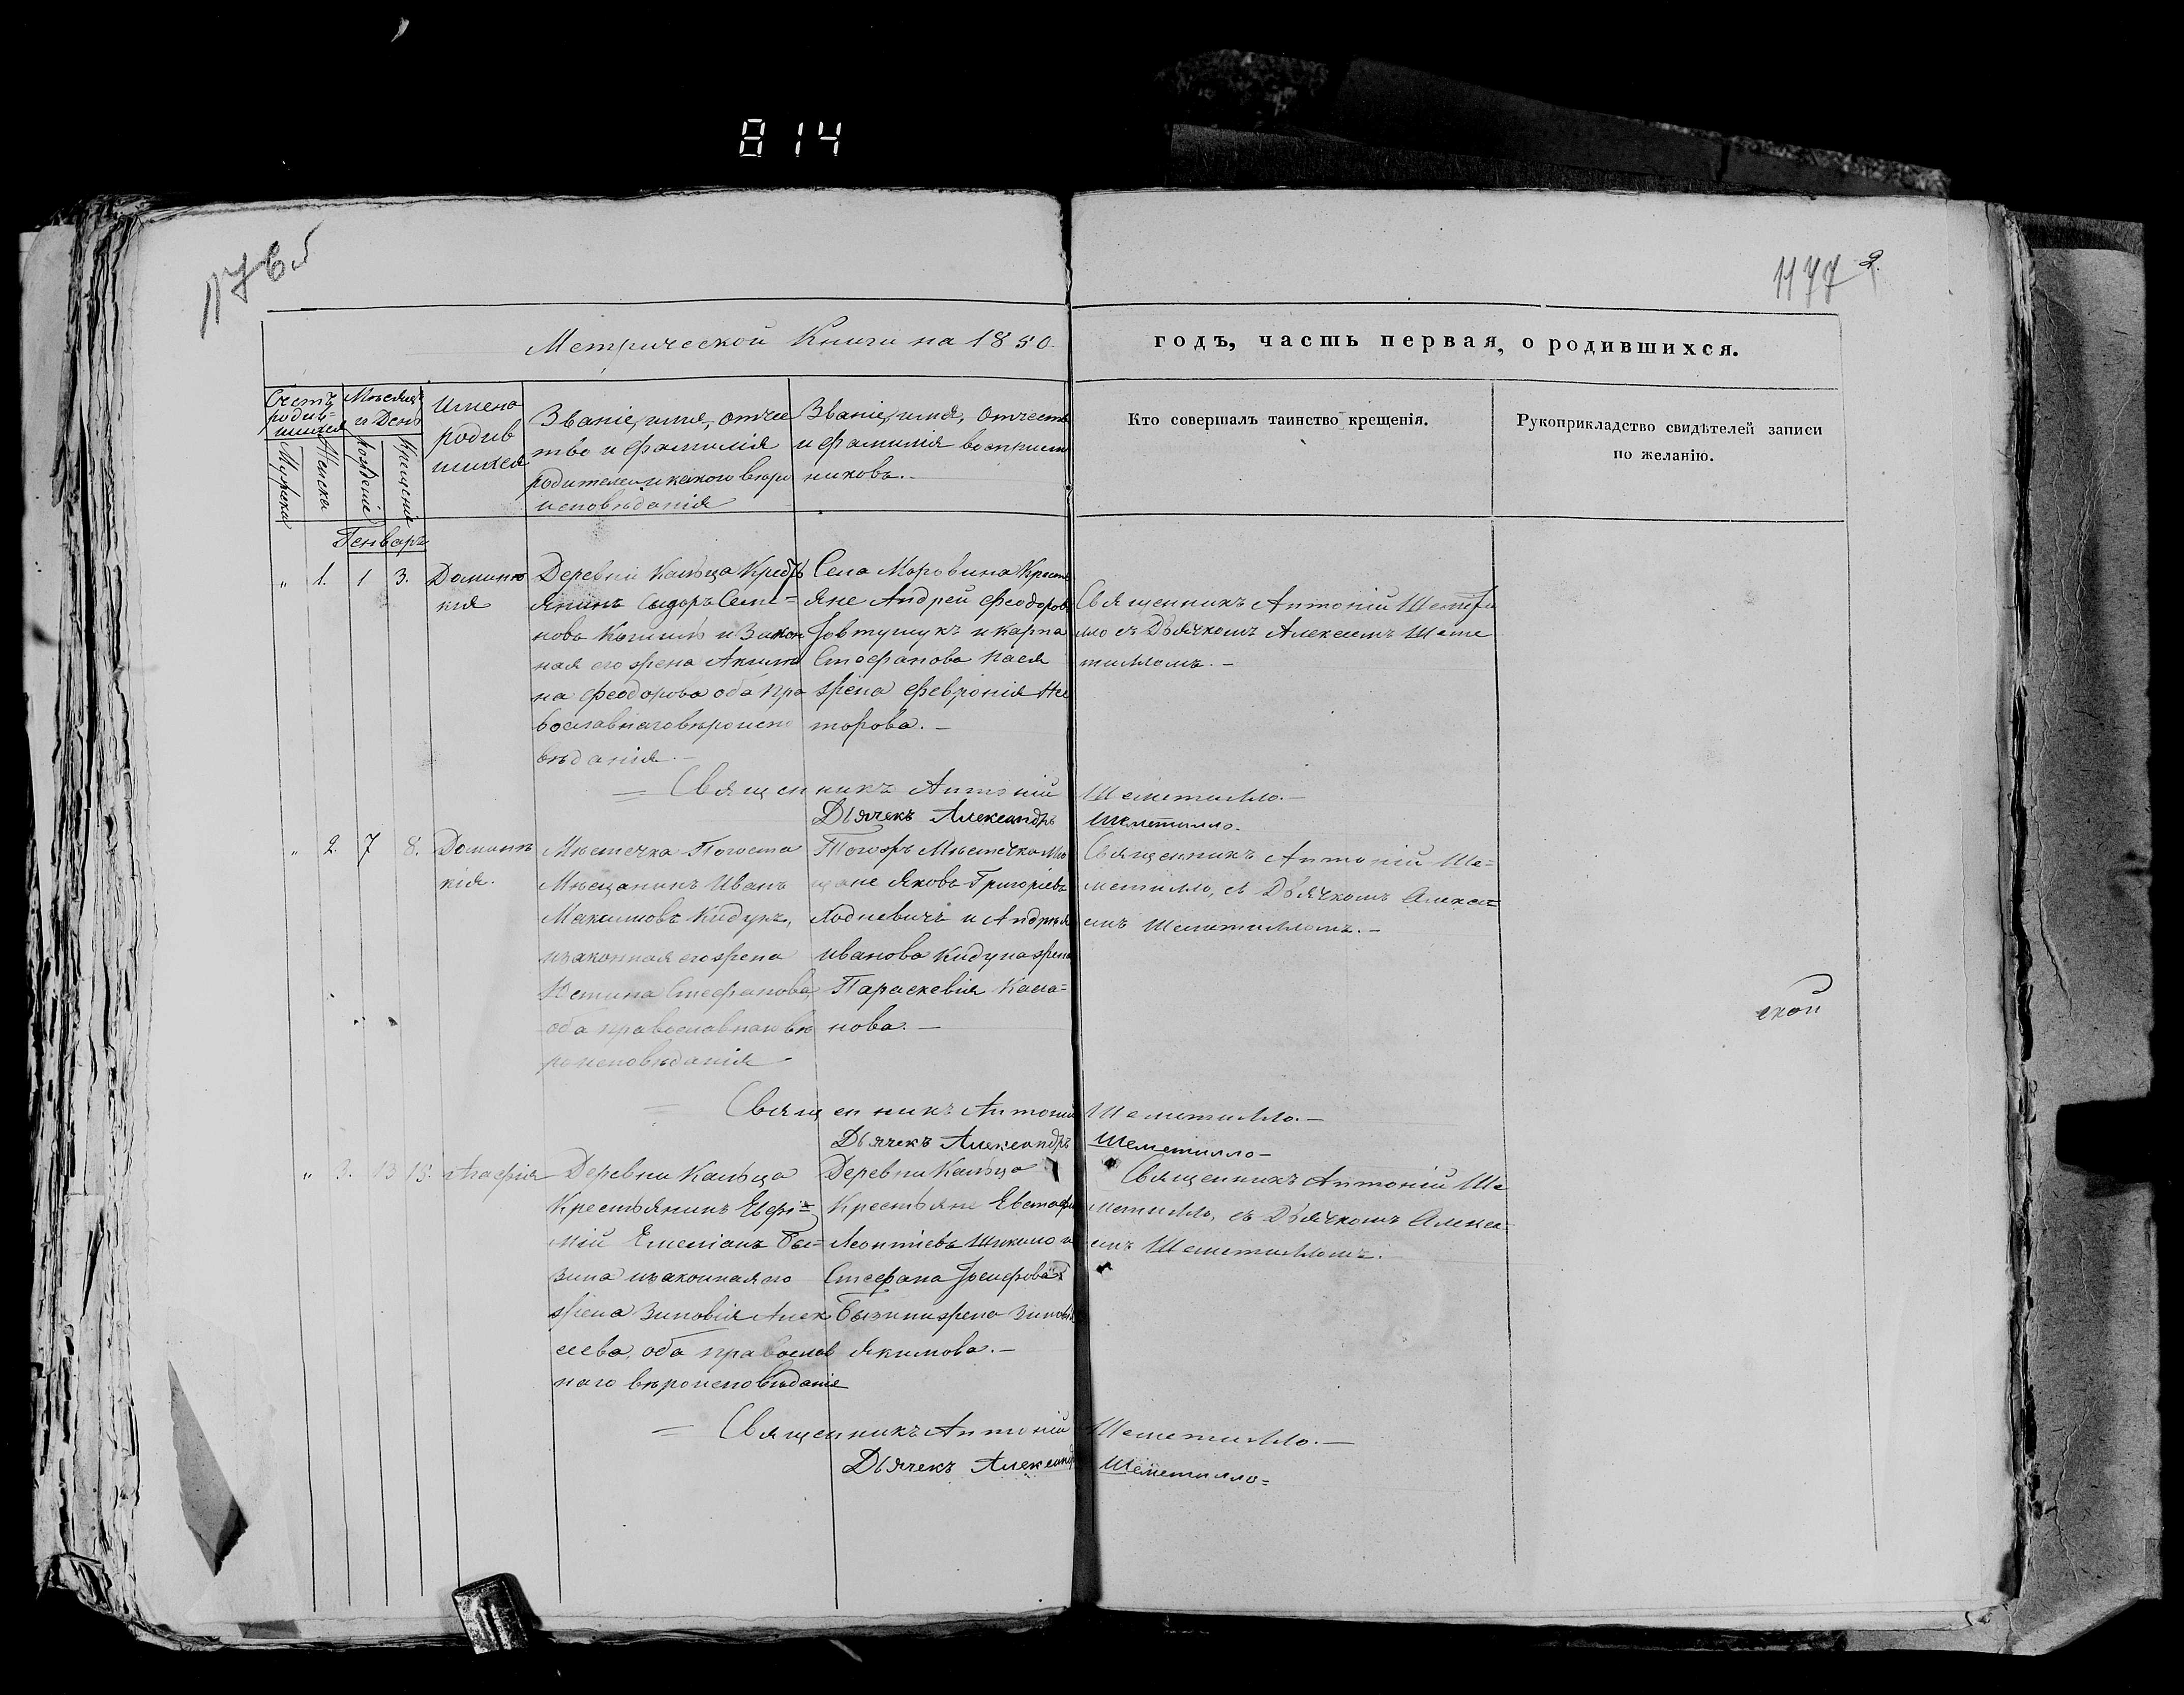 814
1176 б
1177 2.
Метрической Книги на 1850.
годъ, часть первая, о родившихся.
Счетъ родив=шихся
Мужска
Женска
Мѣсяцъ и День
Рожденіе
Крещеніе
Имена
родив
шихся
Званіе, имя, отчес
тво и фамилія
родителей и какого вѣро
исповѣданія
Званіе, имя, отчеств
и фамилія восприем
никовъ.
Кто совершалъ таинство крещенія.
Рукоприкладство свидѣтелей записи
по желанію.
Генварь
" 1. 1 3.
Доминн
кія
Деревни Кальца Крестъ
янинъ Сидоръ Семе=
новъ и Закон
ная его жена Акили
на Феодорова оба пра
вославнаго вѣроиспо
вѣданія.
Села Моровина Кресть
яне Андрей Феодоровъ
Товтушукъ и Карпа
Стефанова Пася
жена Феврония Не
торова. –
Священникъ Антоній Шемети
лло съ Дьячкомъ Алексеемъ Шеме
тилломъ. –
= Священникъ Антоній Шеметилло. –
Дьячекъ Александръ Шеметилло.
" 2. 7 8.
Доминн
кія.
Мѣстечка Погоста
Мѣщанинъ Иванъ
Максимовъ Кидунъ,
изаконная его жена
Юстина Стефанова
оба православнаго вѣ
роисповѣданія
Тогожъ Мѣстечка Мѣ
щане Яковъ Григоріевъ
Ходневичъ и Андрея
Иванова Кидуна жена
Параскевія Каса=
нова. –
Священникъ Антоній Ше=
метилло, съ Дьячкомъ Алексе=
емъ Шеметилломъ. –
ской
= Священникъ Антоній Шеметилло. –
Дьячекъ Александръ Шеметилло –
" 3. 13 15.
Агафія
Деревни Кальца
Крестьянинъ Евфи=
мій Емеліанъ Бы=
зина изаконная его
жена Зиновія Алек
сеева, оба православ
наго вѣроисповѣданія
Деревни Кальца
Крестьяне Евстафи
Леонтіевъ Шикило и
Стефана Іосифова
Бызины жена Зиновія
Якимова. –
Священникъ Антоній Ше
метилло, съ Дьячкомъ Алексе=
емъ Шеметилломъ.
= Священникъ Антоній Шеметилло. –
Дьячекъ Александръ Шеметилло =